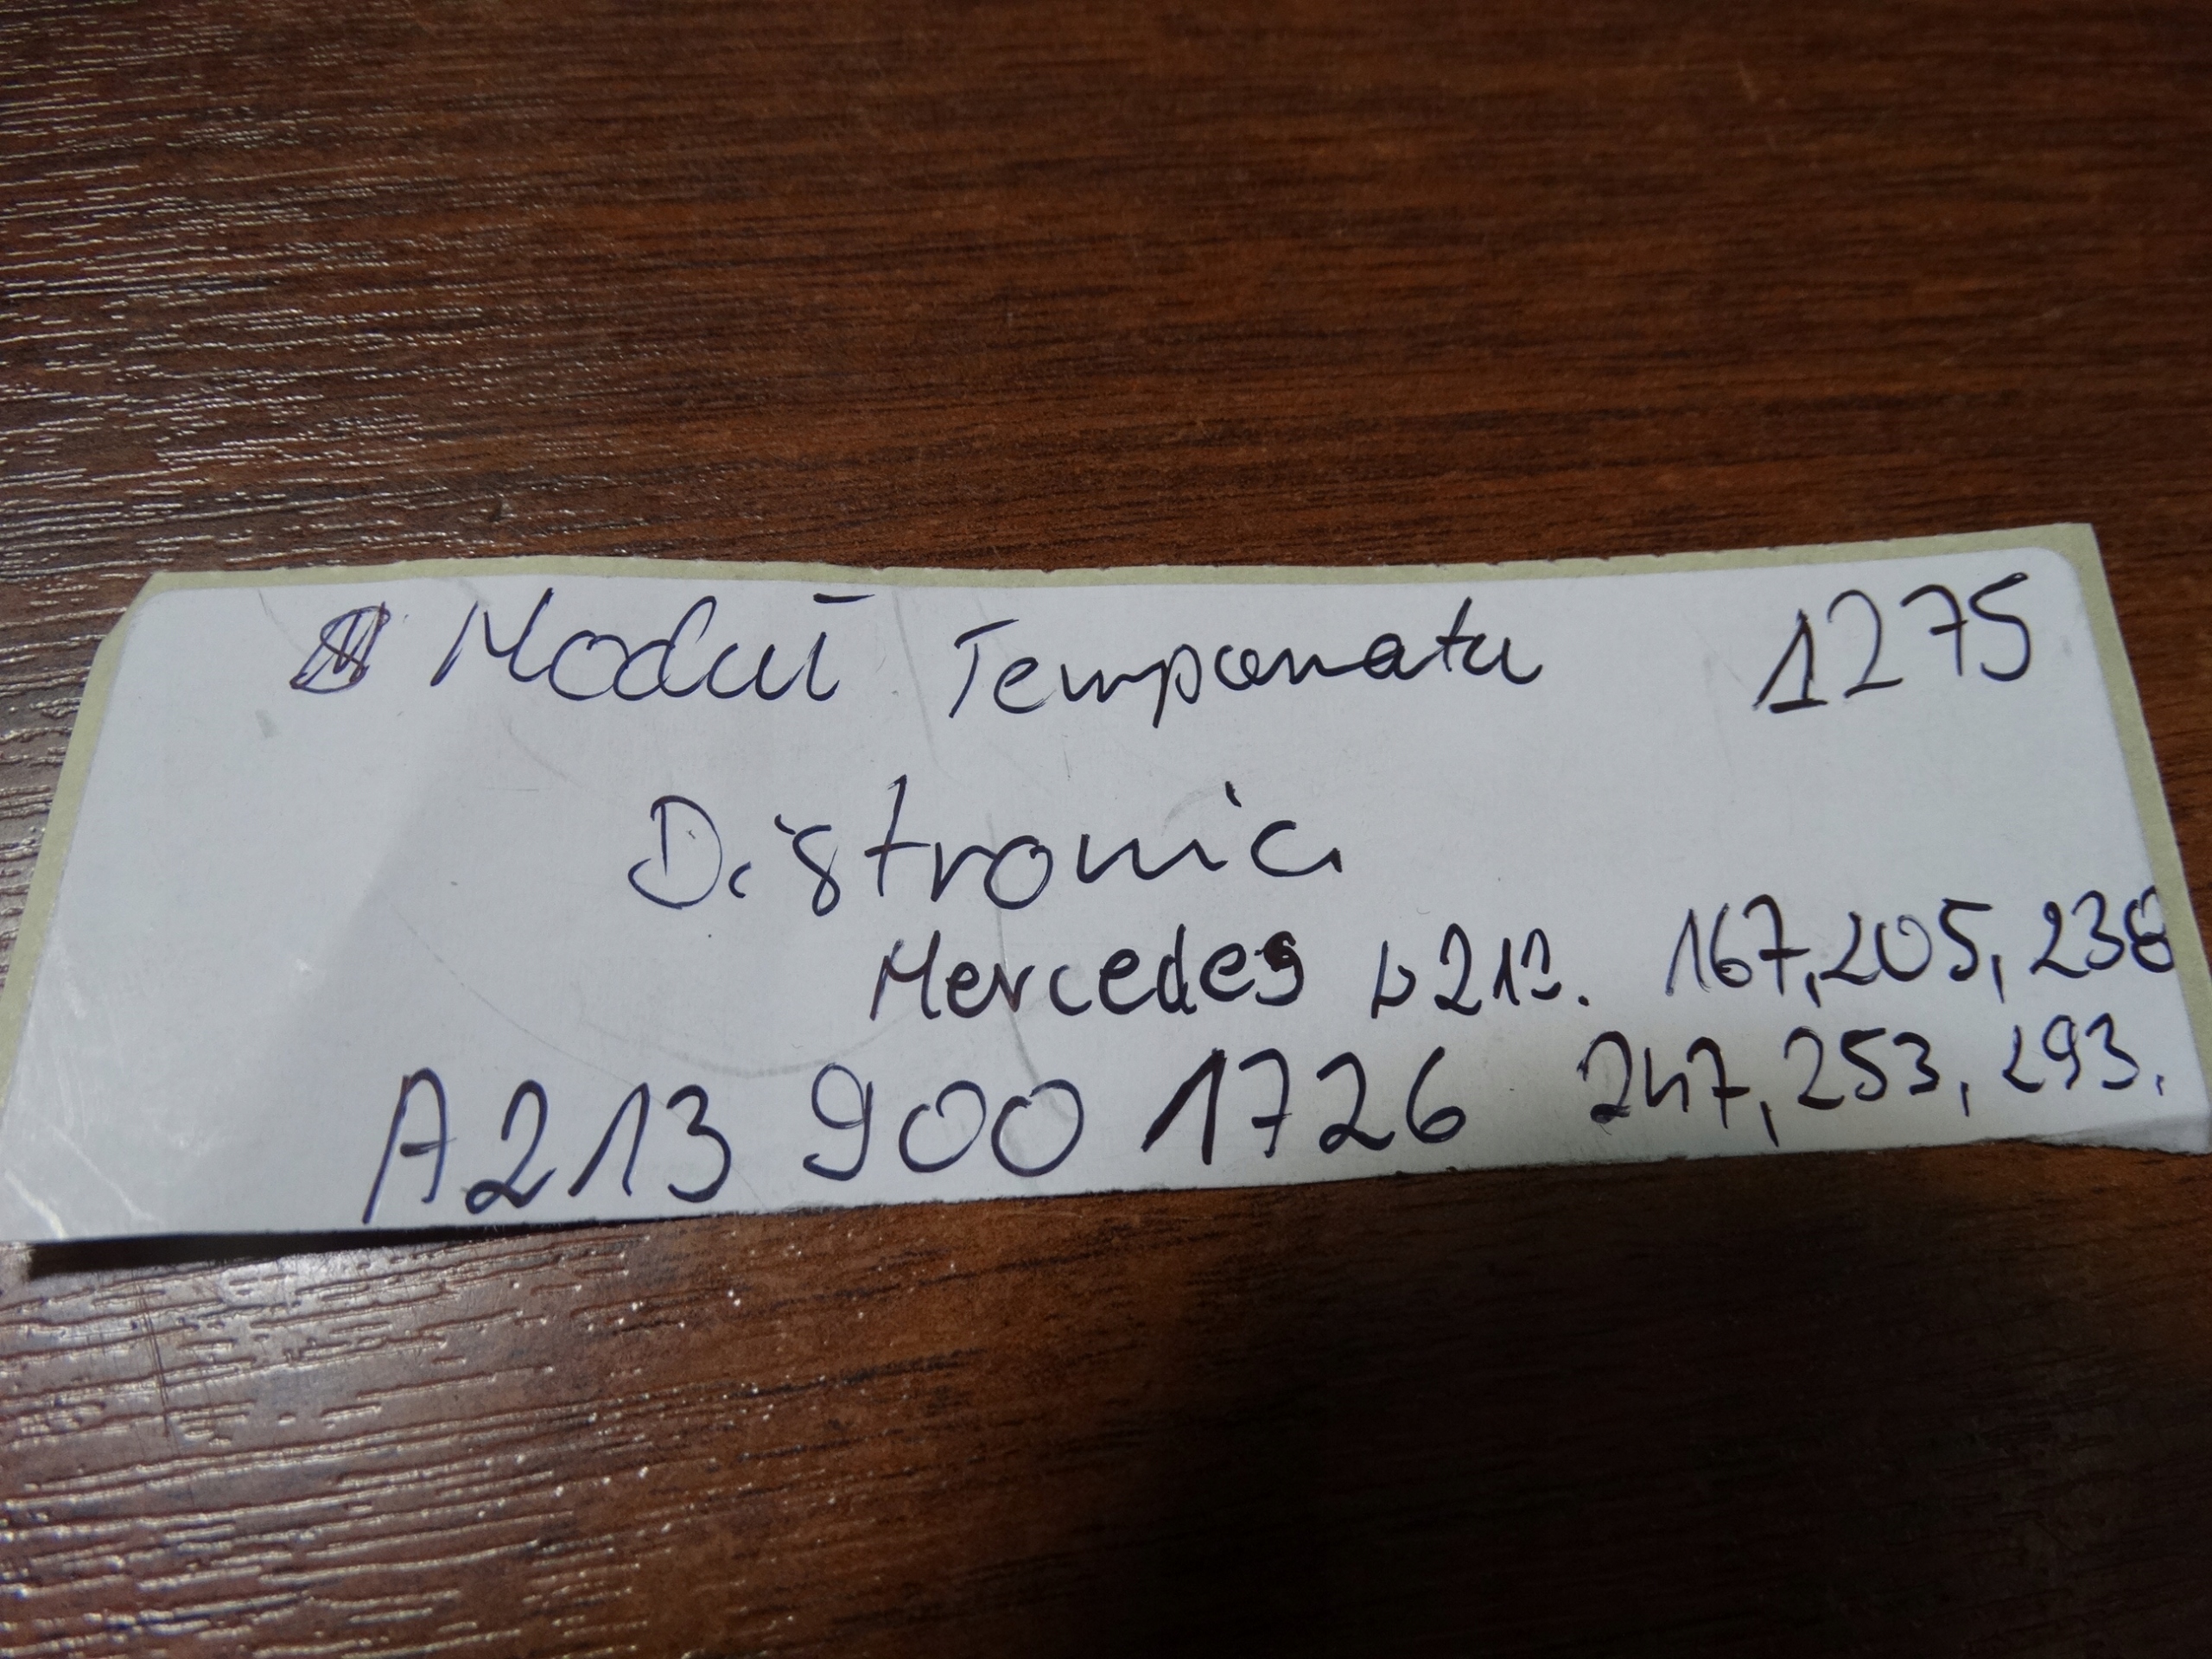 Moduł Tempomatu 1275
Distronic
Mercedes W213. 167, 205, 238
A213 900 1726 247, 253, 293.